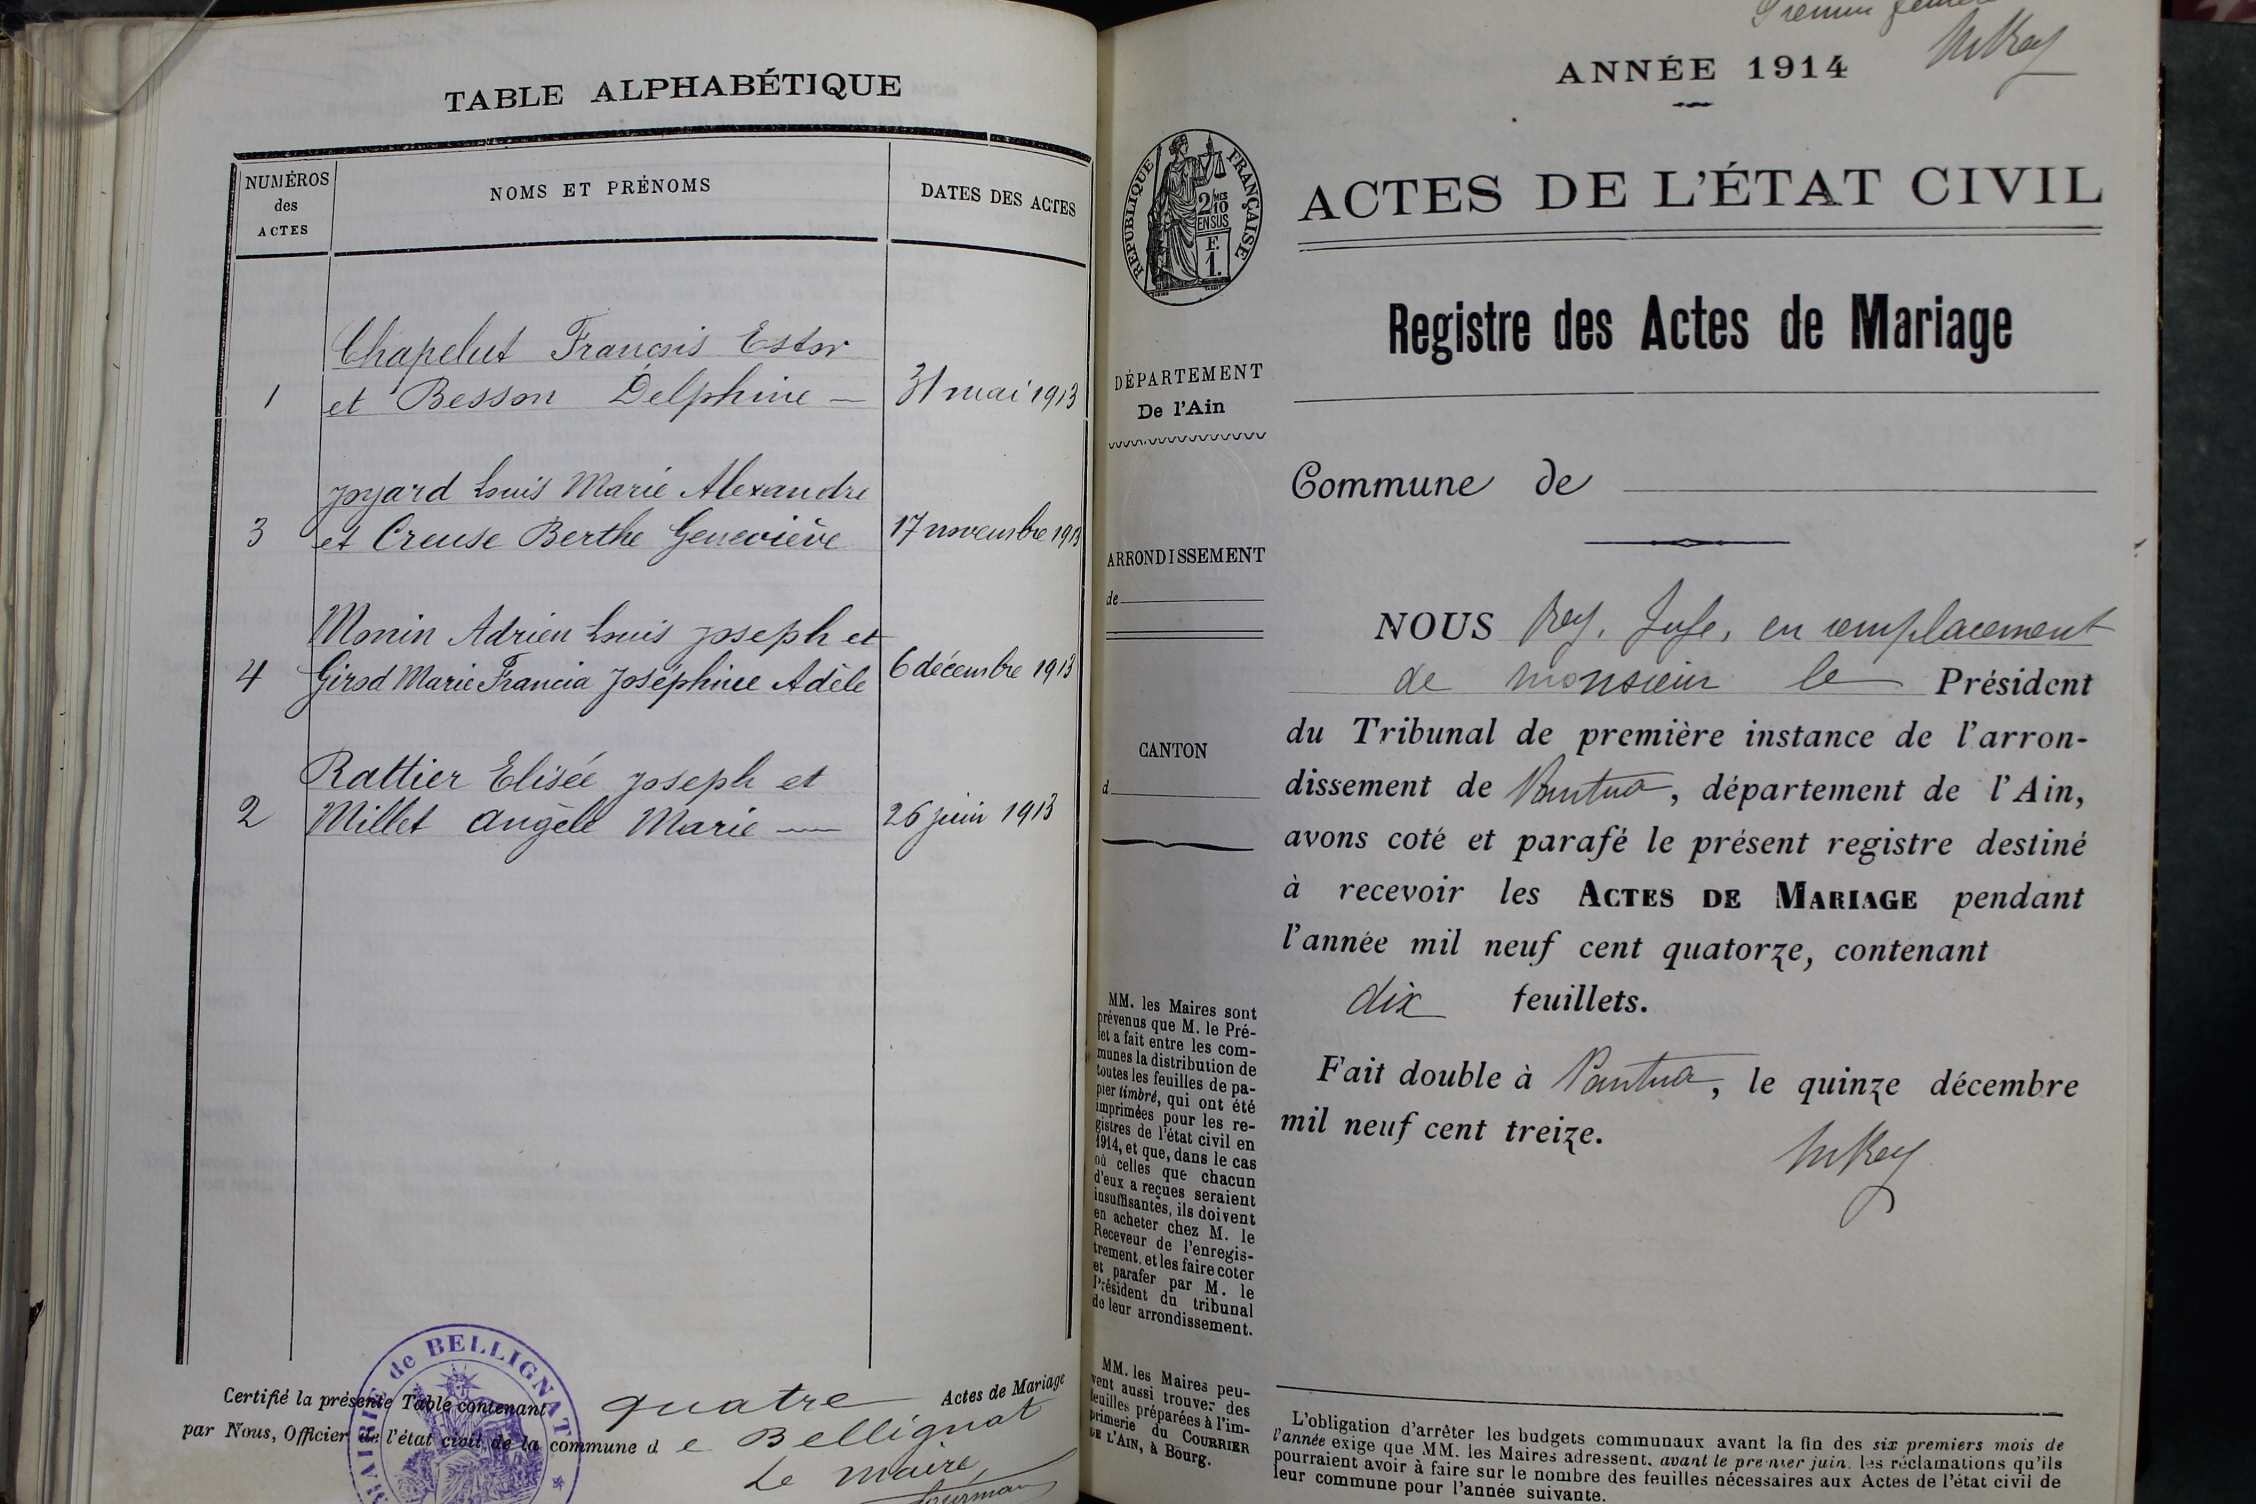 TABLE ALPHABÉTIQUE
NUMÉROS
des
ACTES
NOMS ET PRÉNOMS
DATES DES ACTES
Chapelut François Estor
1 et Besson Delphine — 31 mai 1913
Joyard Louis Marie Alexandre
3 et Creuse Berthe Geneviève 17 novembre 1913
Monin Adrien Louis Joseph et
4 Girod Marie Francia Joséphine Adèle 6 décembre 1913
Rattier Elisée Joseph et
2 Millet Angèle Marie — 26 juin 1913
MAIRIE de BELLIGNAT
Certifié la présente Table contenant quatre Actes de Mariage
par Nous, Officier de l'état civil de la commune de Bellignat
Le maire,
Premier
MRey
ANNÉE 1914
RÉPUBLIQUE FRANÇAISE
2/10 MES
EN SUS
F.
1.
ACTES DE L'ÉTAT CIVIL
Registre des Actes de Mariage
DÉPARTEMENT
De l'Ain
Commune de
ARRONDISSEMENT
de
CANTON
d
NOUS Rey, Juge, en remplacement
de monsieur le Président
du Tribunal de première instance de l'arron-
dissement de Nantua, département de l'Ain,
avons coté et parafé le présent registre destiné
à recevoir les ACTES DE MARIAGE pendant
l'année mil neuf cent quatorze, contenant
dix feuillets.
Fait double à Nantua, le quinze décembre
mil neuf cent treize.
MRey
MM. les Maires sont
prévenus que M. le Pré-
fet a fait entre les com-
munes la distribution de
toutes les feuilles de pa-
pier timbré, qui ont été
imprimées pour les re-
gistres de l'état civil en
1914, et que, dans le cas
où celles que chacun
d'eux a reçues seraient
insuffisantes, ils doivent
en acheter chez M. le
Receveur de l'enregis-
trement, et les faire coter
et parafer par M. le
Président du tribunal
de leur arrondissement.
MM. les Maires peu-
vent aussi trouver des
feuilles préparées à l'im-
primerie du COURRIER
DE L'AIN, à Bourg.
L'obligation d'arrêter les budgets communaux avant la fin des six premiers mois de
l'année exige que MM. les Maires adressent, avant le premier juin, les réclamations qu'ils
pourraient avoir à faire sur le nombre des feuilles nécessaires aux Actes de l'état civil de
leur commune pour l'année suivante.